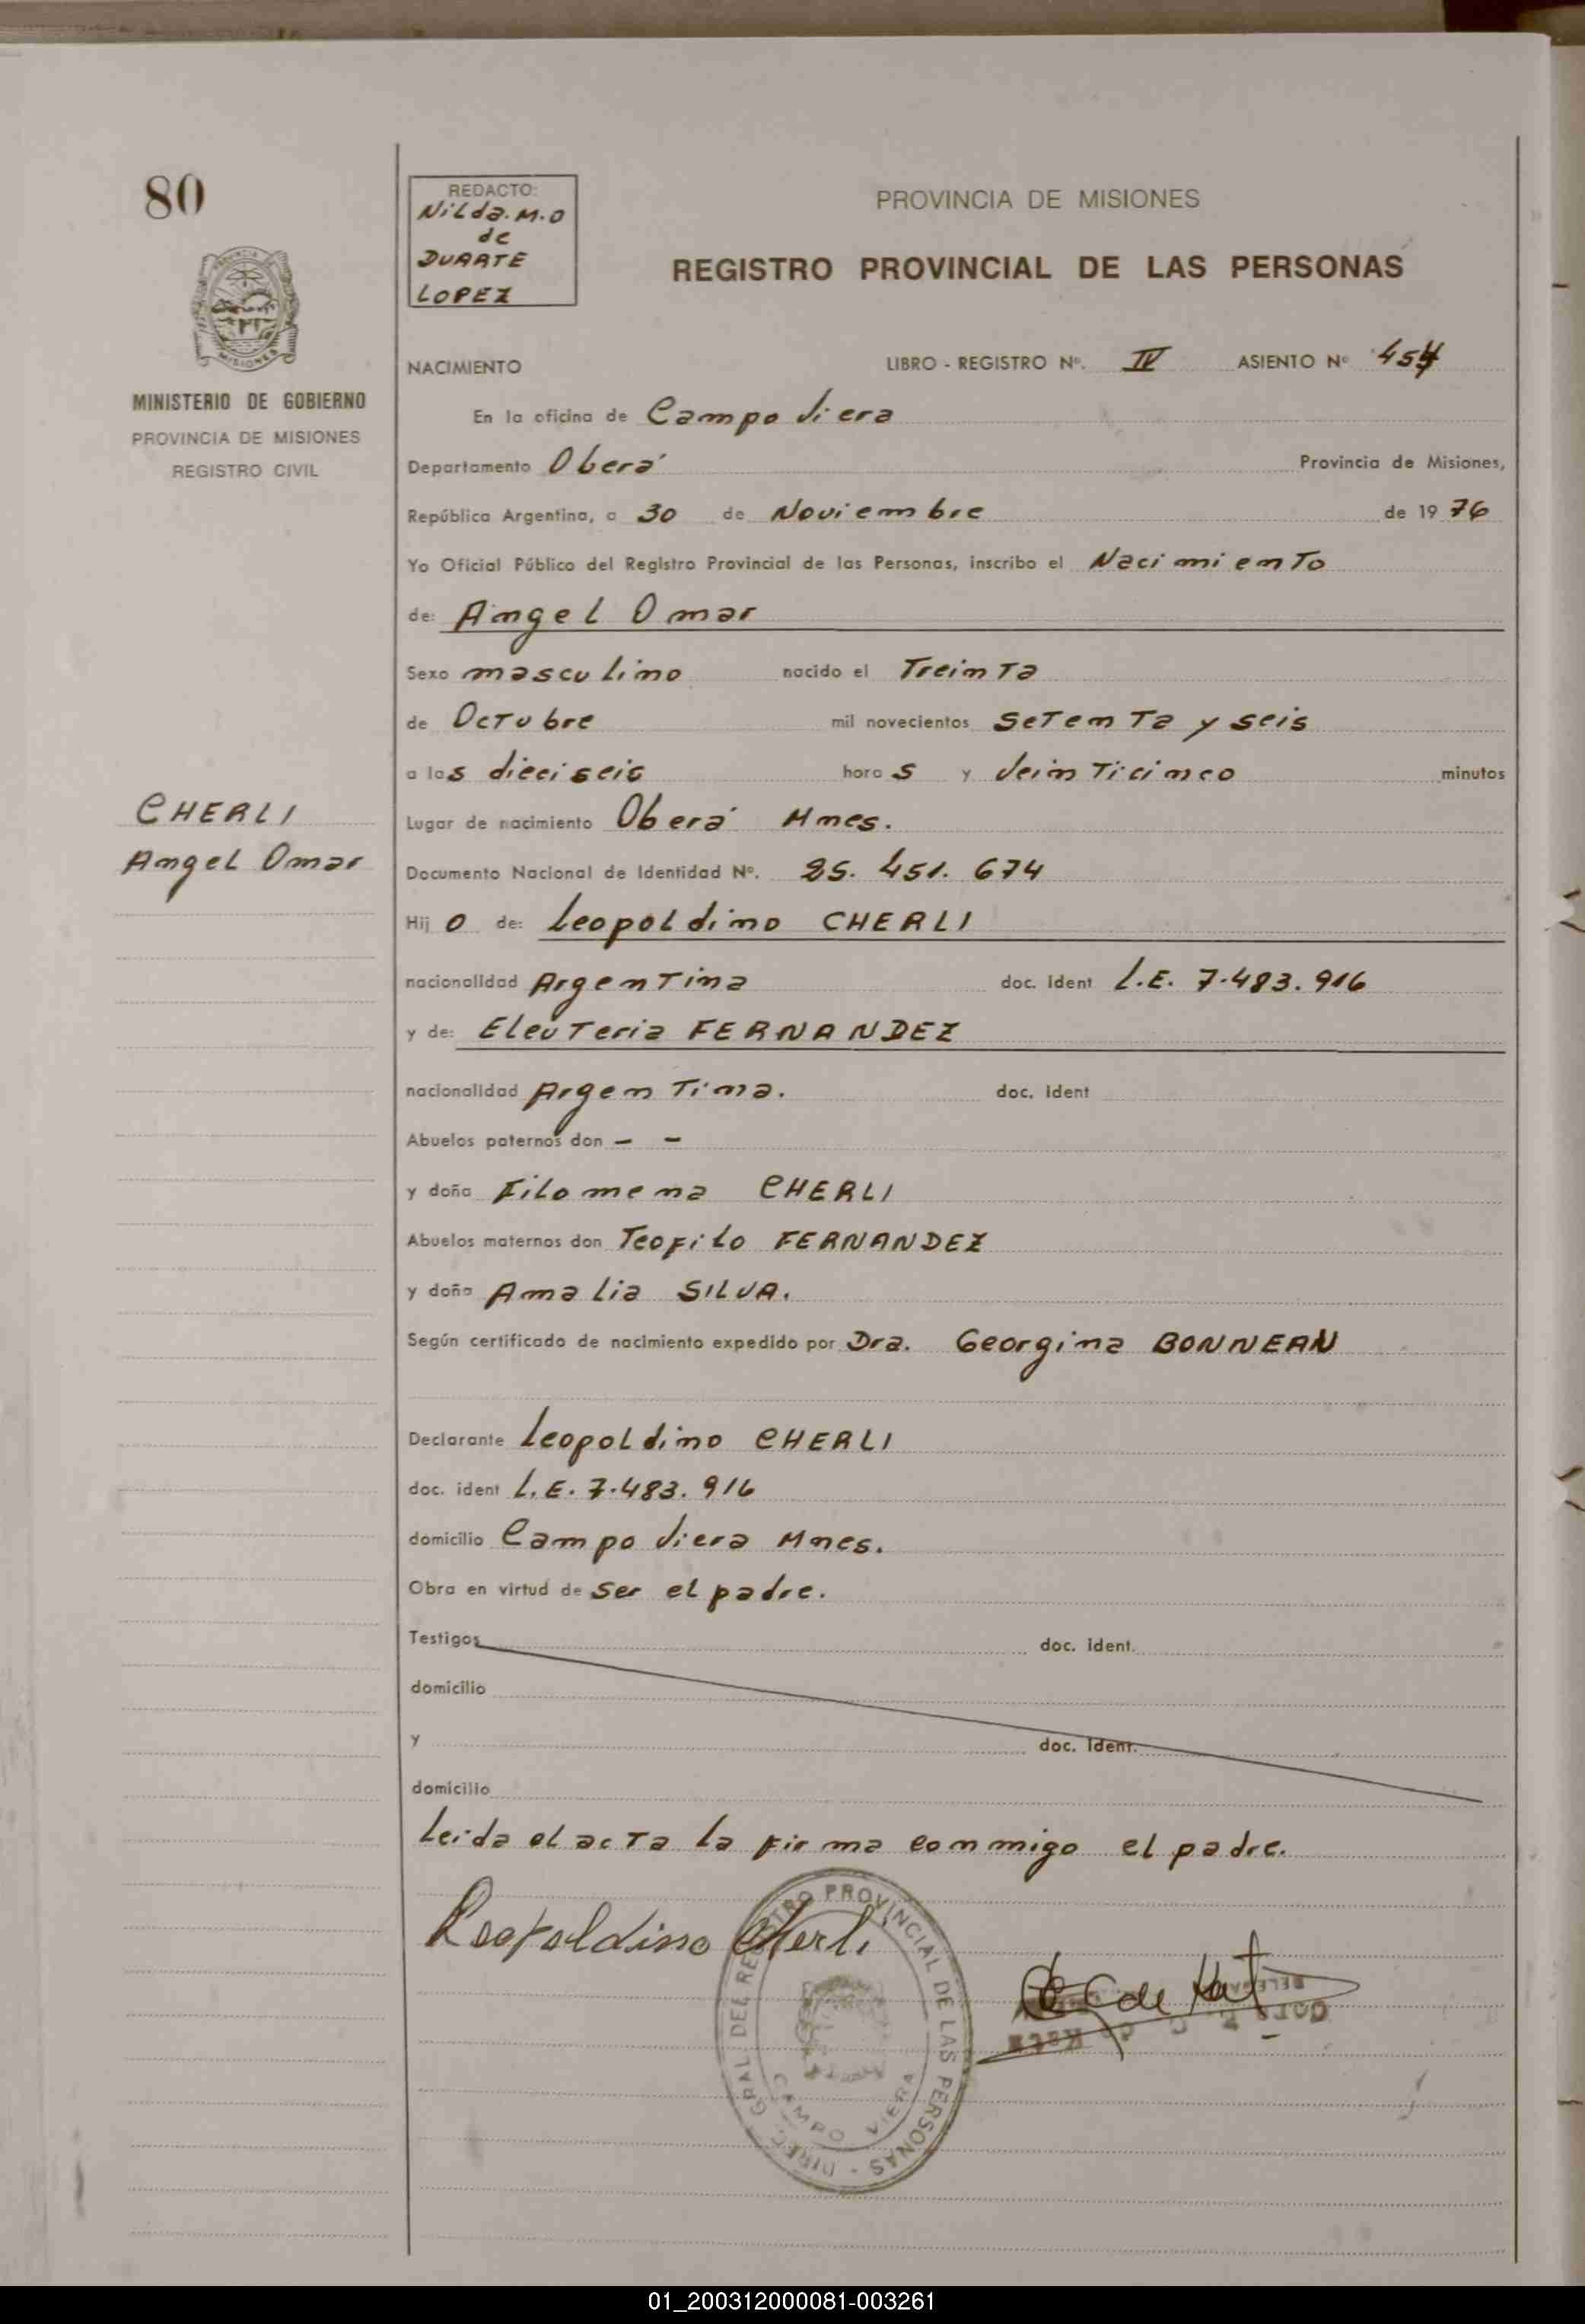 80
REDACTO:
Nilda. M. O
de
DUARTE
LOPEZ
PROVINCIA DE MISIONES
REGISTRO PROVINCIAL DE LAS PERSONAS
MISIONES
MINISTERIO DE GOBIERNO
PROVINCIA DE MISIONES
REGISTRO CIVIL
NACIMIENTO LIBRO - REGISTRO Nº. IV ASIENTO Nº
En la oficina de Campo Viera
Departamento Oberá Provincia de Misiones,
República Argentina, a 30 de Noviembre de 19 76
Yo Oficial Público del Registro Provincial de las Personas, inscribo el Nacimiento
de: Angel Omar
Sexo masculino nacido el Treinta
de Octubre mil novecientos setenta y seis
a las dieciseis horas y veinticinco minutos
CHERLI
Angel Omar
Lugar de nacimiento Oberá Mnes.
Documento Nacional de Identidad Nº. 25. 451. 674
Hijo de: Leopoldino CHERLI
nacionalidad Argentina doc. ident L.E. 7.483.916
y de: Eleuteria FERNANDEZ
nacionalidad Argentina. doc. ident
Abuelos paternos don - -
y doña Filomena CHERLI
Abuelos maternos don Teofilo FERNANDEZ
y doña Amalia SILVA.
Según certificado de nacimiento expedido por Dra. Georgina BONNEAN
Declarante Leopoldino CHERLI
doc. ident L.E. 7.483.916
domicilio Campo Viera Mnes.
Obra en virtud de ser el padre.
Testigos doc. ident.
domicilio
y doc. ident.
domicilio
Leida el acta la firma conmigo el padre.
Leopoldino Cherli
DIREC. GRAL. DEL REGISTRO PROVINCIAL DE LAS PERSONAS -
CAMPO VIERA
01_200312000081-003261